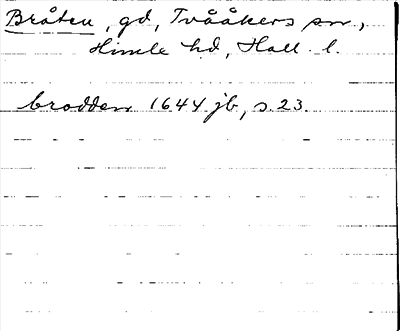 Bråten, gd, Tvååkers sn,
Himle hd, Hall. l.
brodden 1644 jb, s. 23.